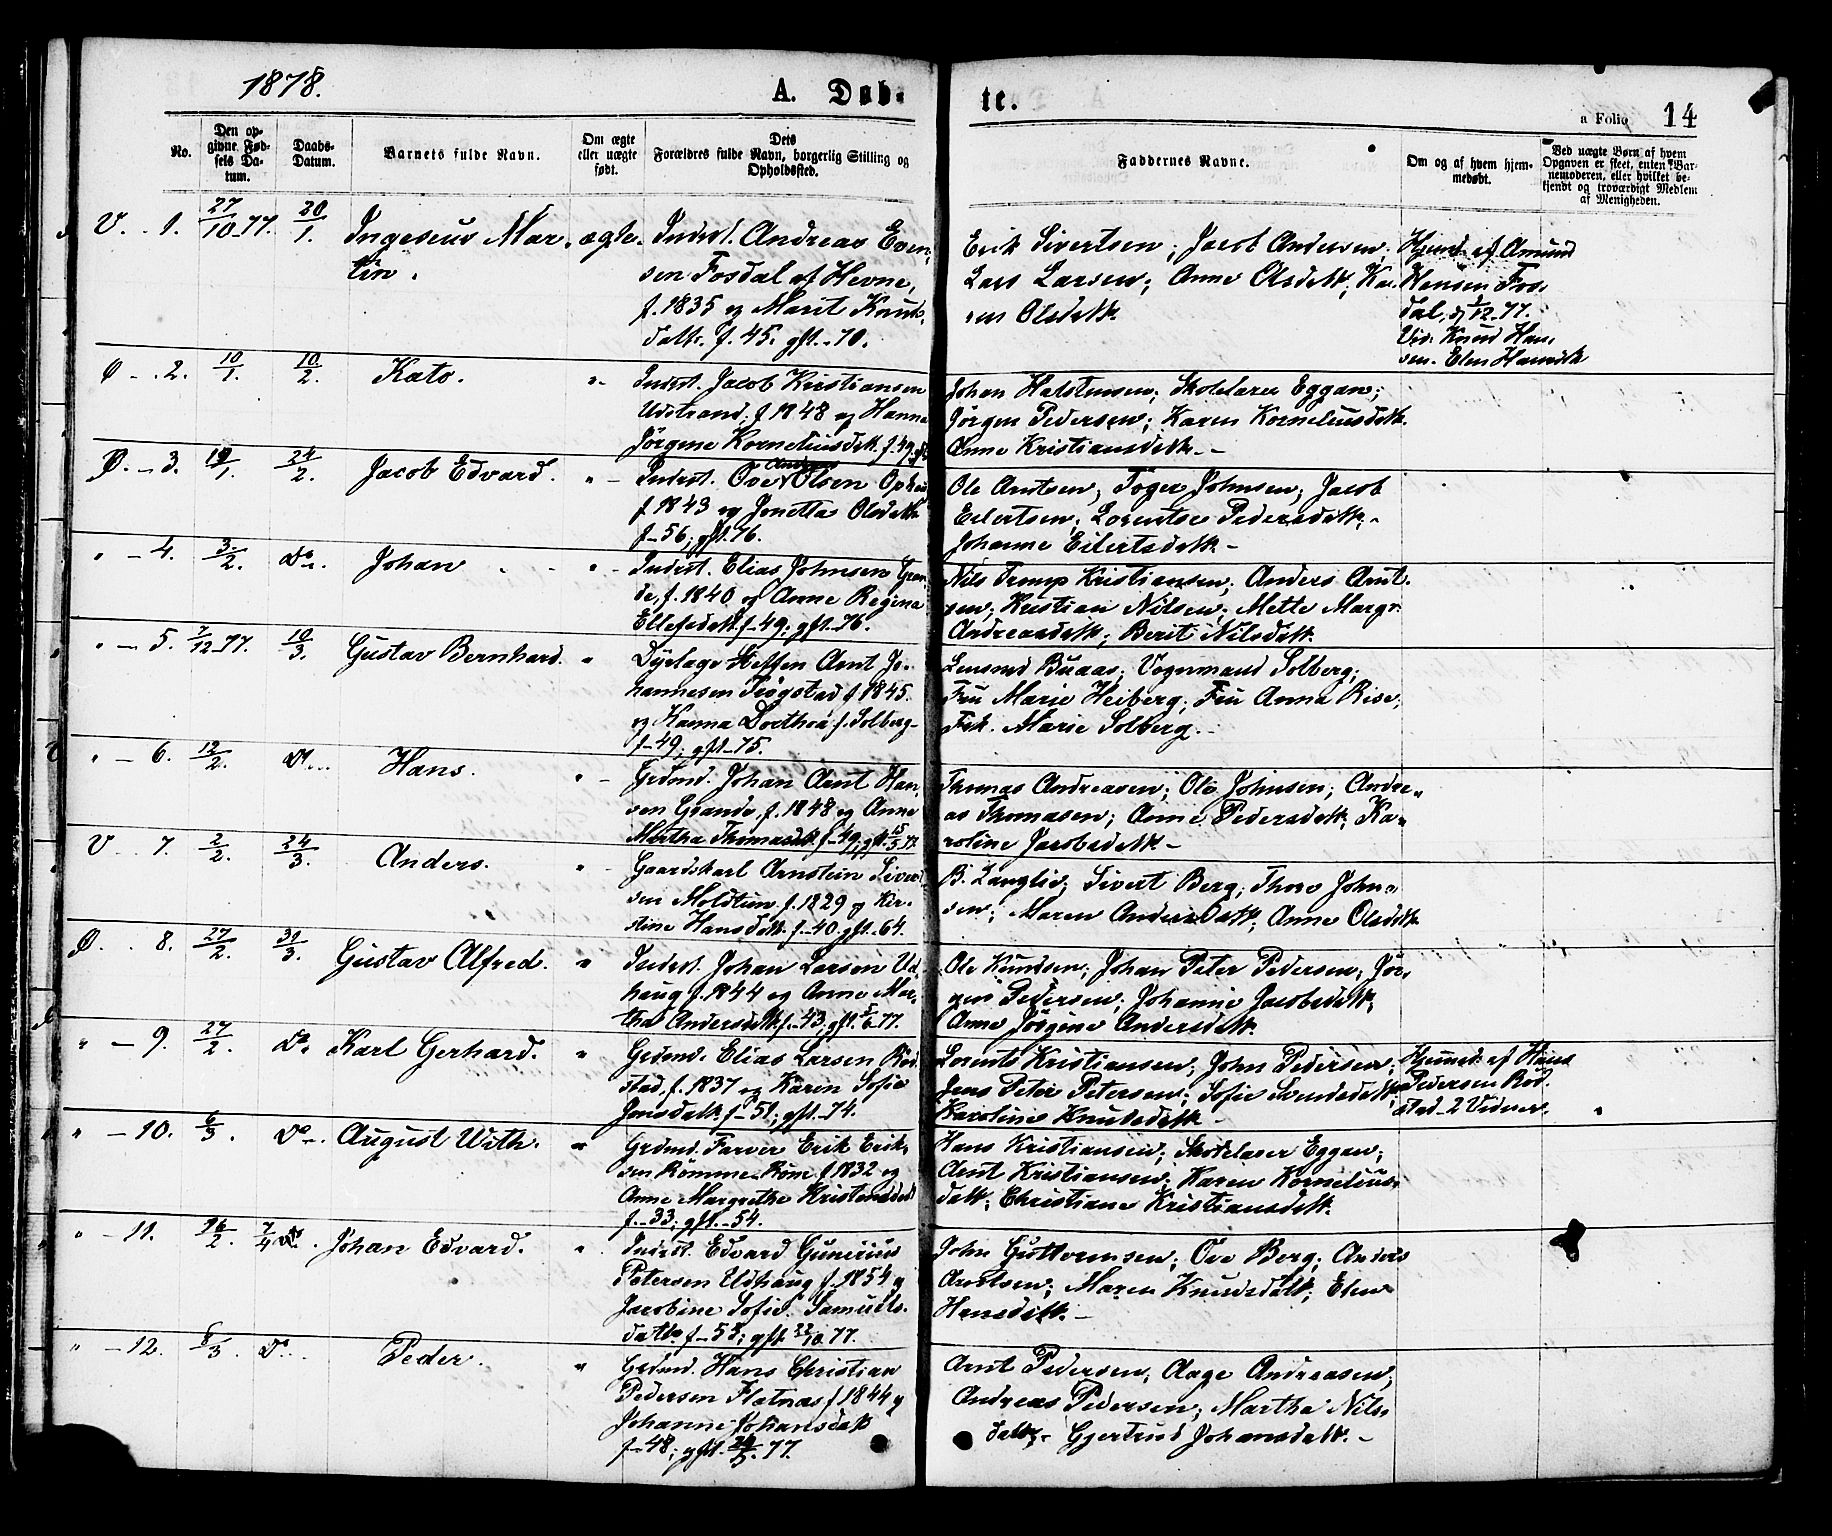 1878.
A. Døb-
te.
a Folio 14
No.
Den op-
givne Fød-
sels Da-
tum.
Daabs-
Datum.
Barnets fulde Navn.
Om ægte
eller uægte
født.
Dets
Forældres fulde Navn, borgerlig Stilling og
Opholdssted.
Faddernes Navne.
Om og af hvem hjem-
medøbt.
Ved uægte Børn af hvem
Opgaven er skeet, enten Bar-
nemoderen, eller hvilket be-
kjendt og troværdigt Medlem
af Menigheden.
V. - 1. 27/10-77. 20/1. Ingeseus Mar- ægte.
tin.
Inderst. Andreas Even-
sen Fosdal af Hevne,
f. 1835 og Marit Knuds-
datt. f. 45. gft. -70.
Erik Sivertsen; Jacob Andersen;
Lars Larsen; Anne Olsdatt; Ka-
ren Olsdatt.
Hjemd. af Amund
Hansen Fos-
dal, d 1/12-77.
Vid. Knud Han-
sen. Elen Hansdt
Ø - 2. 10/1. 10/2. Kato. "
Inderst. Jacob Kristiansen
Udstrand. f. 1848 og Hanna
Jörgene Kornelíusdtt. f. 49.
Johan Halstensen; Skolelærer Eggan;
Jörgen Pedersen; Karen Korneliusdatt.
Anne Kristiansdatt. -
Ø. - 3. 24/2. Jacob Edvard. "
Inderst. Ove Andreas Olsen Ophaug
f. 1843 og Jonetta Olsdatt
f-56; gft. 76.
Ole Arntsen; Töger Johnsen; Jacob
Eilertsen; Lorentse Pedersdatt. -
Johanne Eilertsdatt. -
" - 4. 3/2. do. Johan "
Inderst. Elias Johnsen Gran-
de, f. 1840 og Anne Regina
Ellefsdatt. f-49; gft. -76.
Nils Tromp Kristiansen; Anders Arnt-
sen; Kristian Nilsen; Mette Margr.
Andreasdatt; Berit Nilsdatt.
" - 5. 7/12-77. 10/3. Gustav Bernhard. "
Dyrlæge Steffen Arnt Jo-
hannesen Trögstad f. 1845.
og Hanna Dorthea f. Solberg
f-49; gft. -75.
Lensmd Buaas; Vognmand Solberg;
Fru Marie Heiberg; Fru Anna Rise;
Frk. Marie Solberg. -
" - 6. 12/2. do. Hans. "
Grdmd. Johan Arnt Han-
sen Grande, f. 1848 og Anne
Martha Thomasdt. f-49; gft. 15/5 77
Thomas Andreasen; Ole Johnsen; Andre-
as Thomasen; Anne Pedersdatt; Ka-
roline Jacobsdatt. -
V - 7. 2/2. 24/3. Anders. "
Gaardskarl Arnstein Siver-
sen Moldtun. f. 1829 og Kir-
stine Hansdtt. f. -40. gft. -64.
B. Langlid; Sivert Berg; Thore John-
sen; Maren Andersdatt; Anne Olsdatt
Ø. - 8. 27/2. 31/3. Gustav Alfred. "
Inderst. Johan Larsen Ud-
haug f. 1844 og Anne Mar-
tha Andersdatt. f. -43; gft. 77.
Ole Knudsen; Johan Peter Pedersen; Jör-
gen Pedersen; Johanne Jacobsdatt;
Anne Jörgine Andersdatt.
" - 9. 27/2. do. Karl Gerhard. "
Grdmd. Elias Larsen Röd-
stad, f. 1837 og Karen Sofie
Jensdatt. f-51; gft. -74.
Lorents Kristiansen; John Pedersen;
Jens Peter Petersen; Sofie Svendsdatt;
Karoline Knudsdatt -
Hjemd. af Hans
Pedersen Röd-
stad - 2 Vidner.
" - 10. 6/3. do. August With. "
Grdmd. Farver Erik Erik-
sen Römme f. 1832 og
Anne Margrethe Kristensdatt
f. -33; gft. -54.
Hans Kristiansen; Skolelærer Eggan;
Arnt Kristiansen; Karen Kornelius-
datt; Christiane Kristiansdatt.
" - 11. 16/2. 7/4 Johan Edvard. "
Inderst. Edvard Gunerius
Petersen Udhaug f. 1854 og
Jacobine Sofie Samuels-
datt. f-58; gft. 22/10 77.
John Guttormsen; Ove Berg; Anders
Arntsen; Maren Knudsdatt; Elen
Hansdatt. -
" - 12. 8/3. do. Peder. "
Grdmd. Hans Christian
Pedersen Flatnæs f 1844 og
Johanne Johansdatt
f-48; gft. 77.
Arnt Pedersen; Aage Andreasen;
Andreas Pedersen; Martha Nils-
datt; - Gjertrud Johansdatt. -